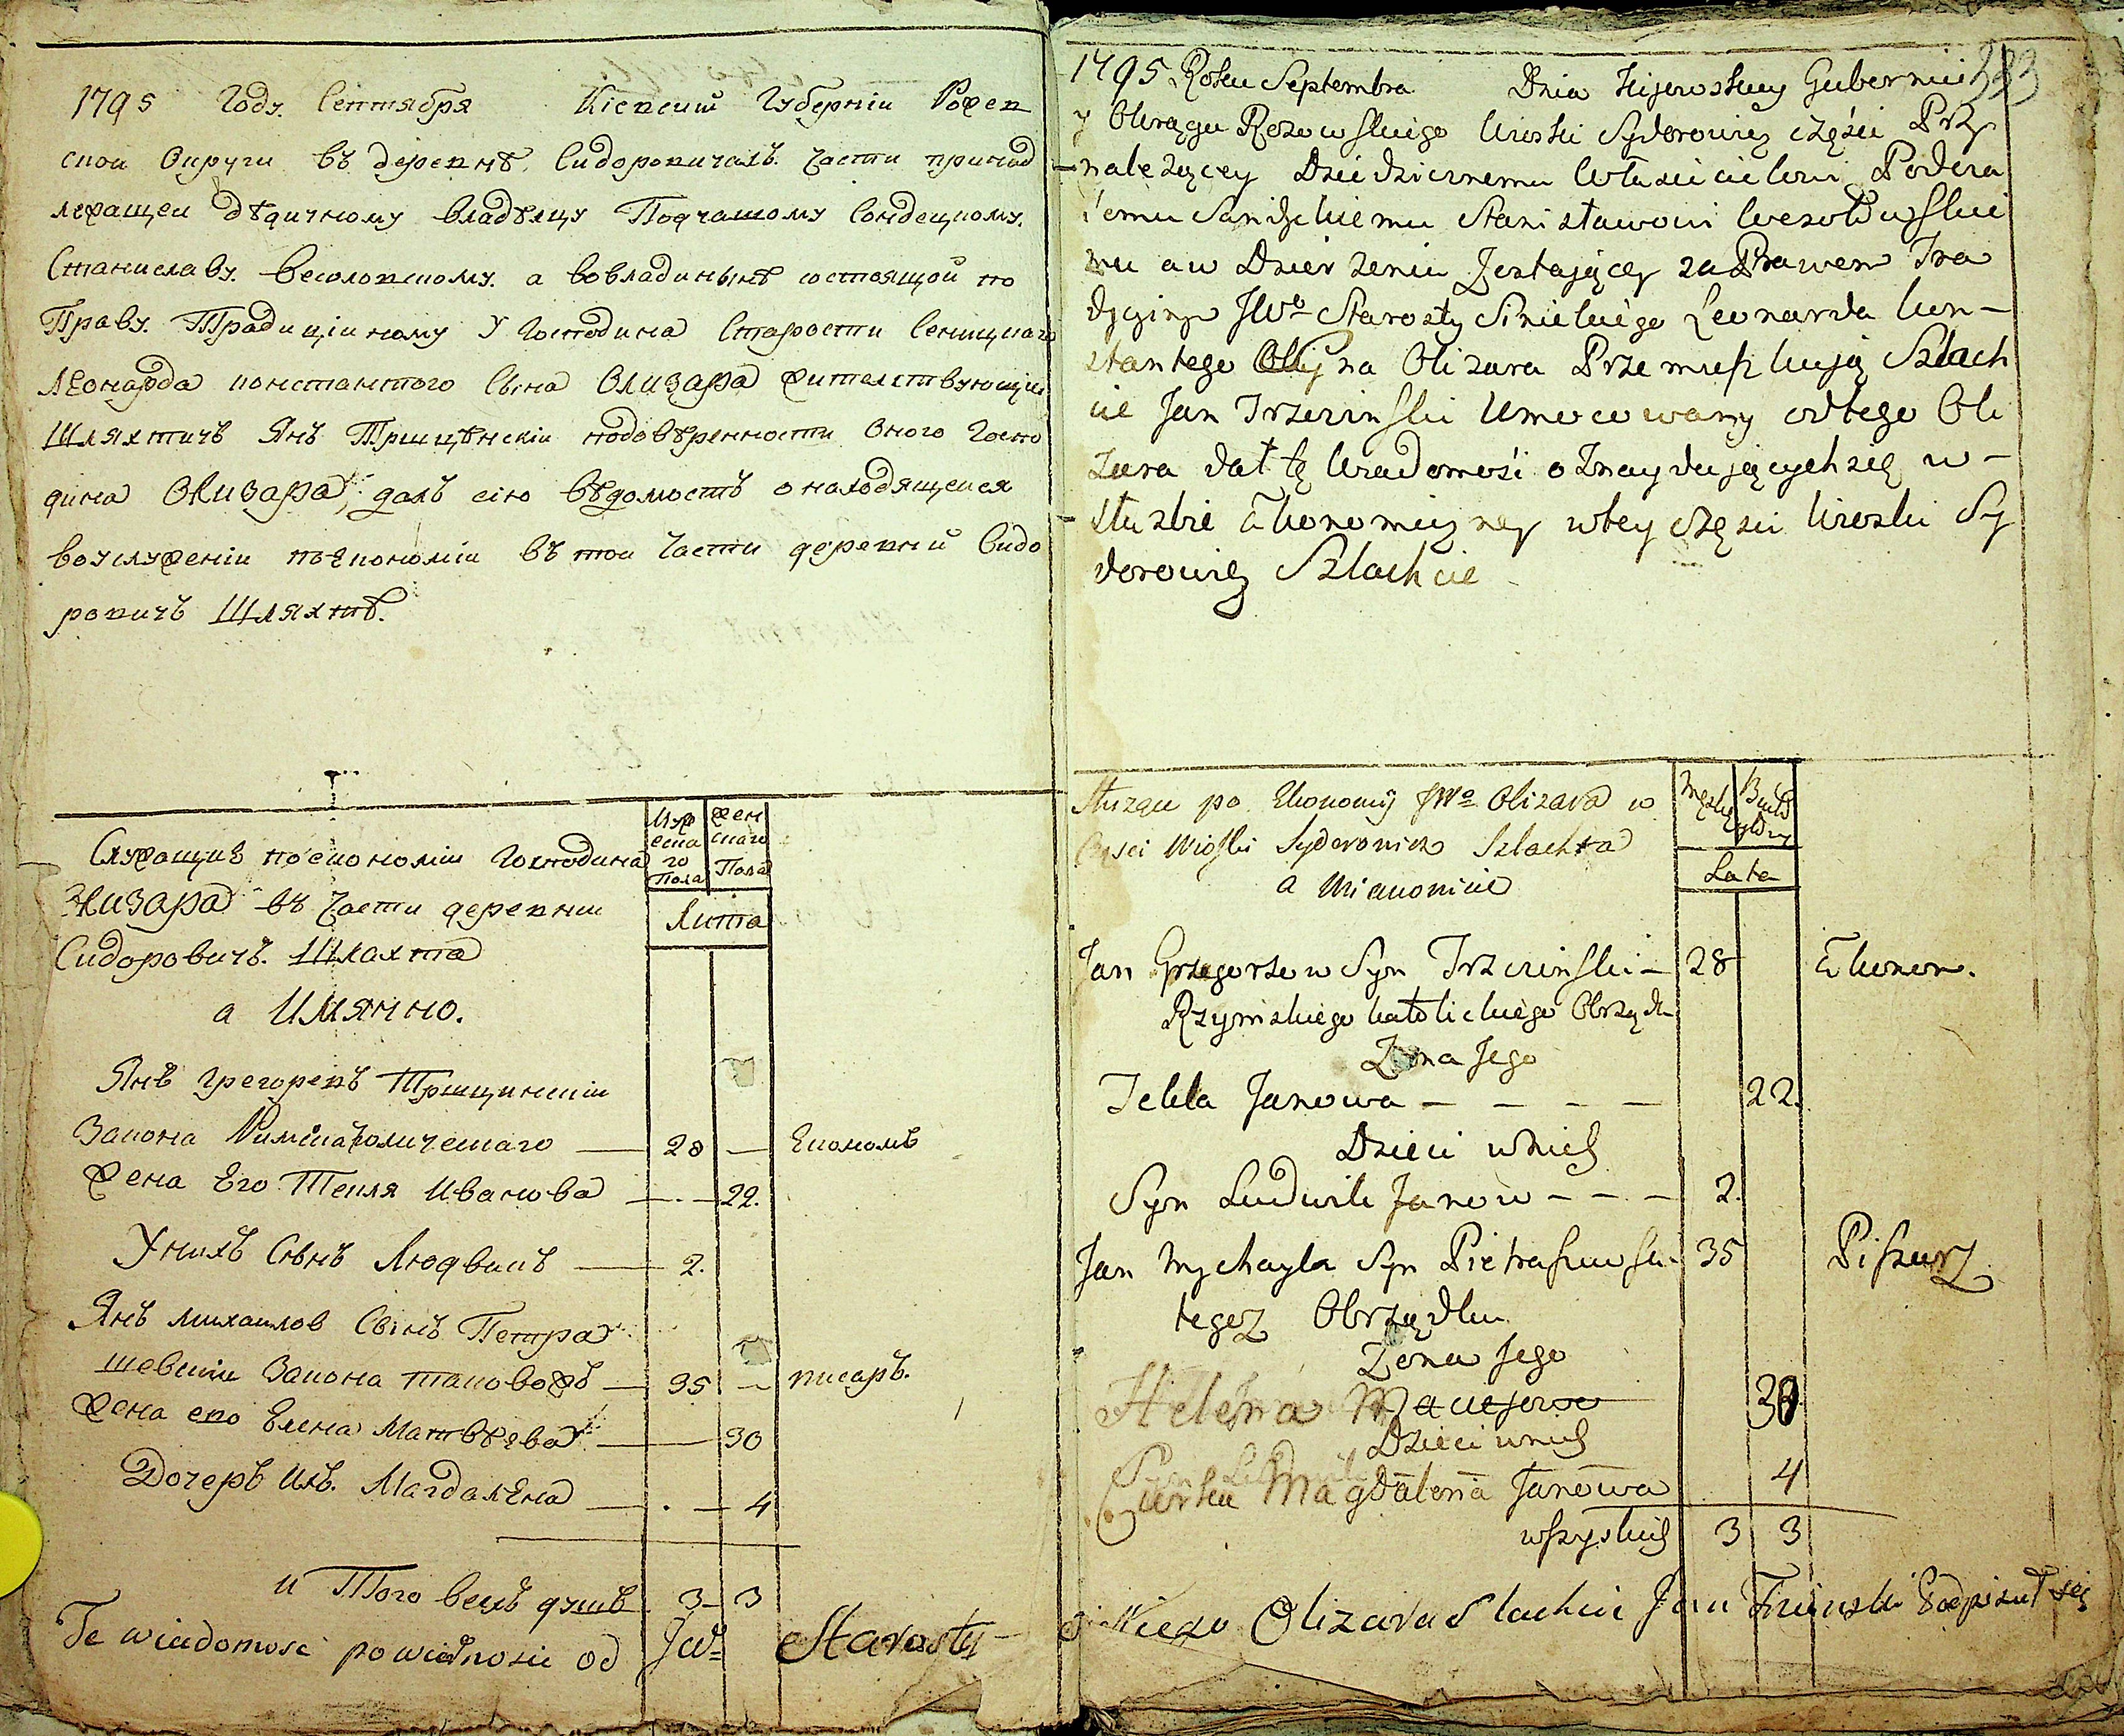 1795 Году. Сентября Кіевской Губерніи Рожев
ской Округи въ деревнѣ Сидоровичахъ. Части принад
лежащеи дѣдичному владѣлцу Подчашому Сондецкому.
Станиславу. Весоловскому. а вовладиныѣ состоящой по
Праву. Традиціиному У Господина Старости Сеницкаго
Леонарда константого Сына Олизара жителствующій
Шляхтичъ Янъ Трщинскіи подовѣренности Оного Госпо
дина Олизара, далъ сію вѣдомость о находящеися
воуслуженіи поекономіи въ той Части деревни Сидо
ровичъ Шляхтѣ.
Служащие поекономіи Господина
Олизара въ Части деревни
Сидоровичъ. Шлахта
а Имянно.
Муж
еска
го
Пола
жен
скаго
Пола
Лита
Янъ Грегоревъ Трщинскіи
Закона Римскатолическаго — 28 — Економъ
жена Его Текля Иванова — . — 22.
Унихъ Сынъ Людвикъ — 2.
Янъ михаилов Сынъ Петра
шевскіи Закона таковожъ — 35 — писаръ.
жена ево Елена Матвѣева — 30
Дочеръ ихъ. Магдалена — . — 4
и Того всихъ душъ 3 — 3
Te wiadomosc powiernosci od JWo Starosty
1795 Roku Septembra Dnia Kijowskiey Gubernii 333
y Okręgu Rożowskiego Wioski Syderowicz części Przy
-należącey Dziedzicznemu Właścicielowi Podcza
szemu Sandeckiemu Stanisławowi Wesołowskie
mu a w Dzierżeniu Zostającey za Prawem Tra
dycyinym JWo Starosty Sinickiego Leonarda Kon-
stantego Syna Olizara Przemieszkują Szlach
cic Jan Trzcinski Umocowany od tego Oli
zara dał tę Wiadomość o Znaydujących się w -
służbie Ekonomiczney w tey Części Wioski Sy
dorowicz Szlachcie
Służące po Ekonomij JWo Olizara w
Części Wioski Syderowicz Szlachta
a Mianowicie
Męsk
Lata
Jan Grzegorzow Syn Trzcinski - 28 Ekonom.
Rzymskiego katolickiego Obrządk
Zona Jego
Tekla Janowa - - - - 22.
Dzieci w Nich
Syn Ludwik Janow - - - 2.
Jan Mychayla Syn Pietraszewski 35 Piszarz
tegoż Obrządku
Zona Jego
Helena Maciejowa 30
Dzieci w nich
Curka Magdalena Janowa 4
wszystkich 3 3
Olizara Slachcic Jan Trzinski Podpisał się